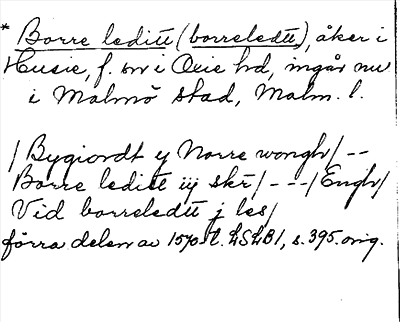 * Borre leditt (borreledtt), åker i
Husie, f. sn i Oxie hd, ingår nu
i Malmö stad, Malm. l.
/ Bygiordt y Norre wongh / --
Borre leditt iij skr / --- / Engh /
Vid borreledtt j les /
förra delen av 1570-t. LSLB 1, s. 395. orig.